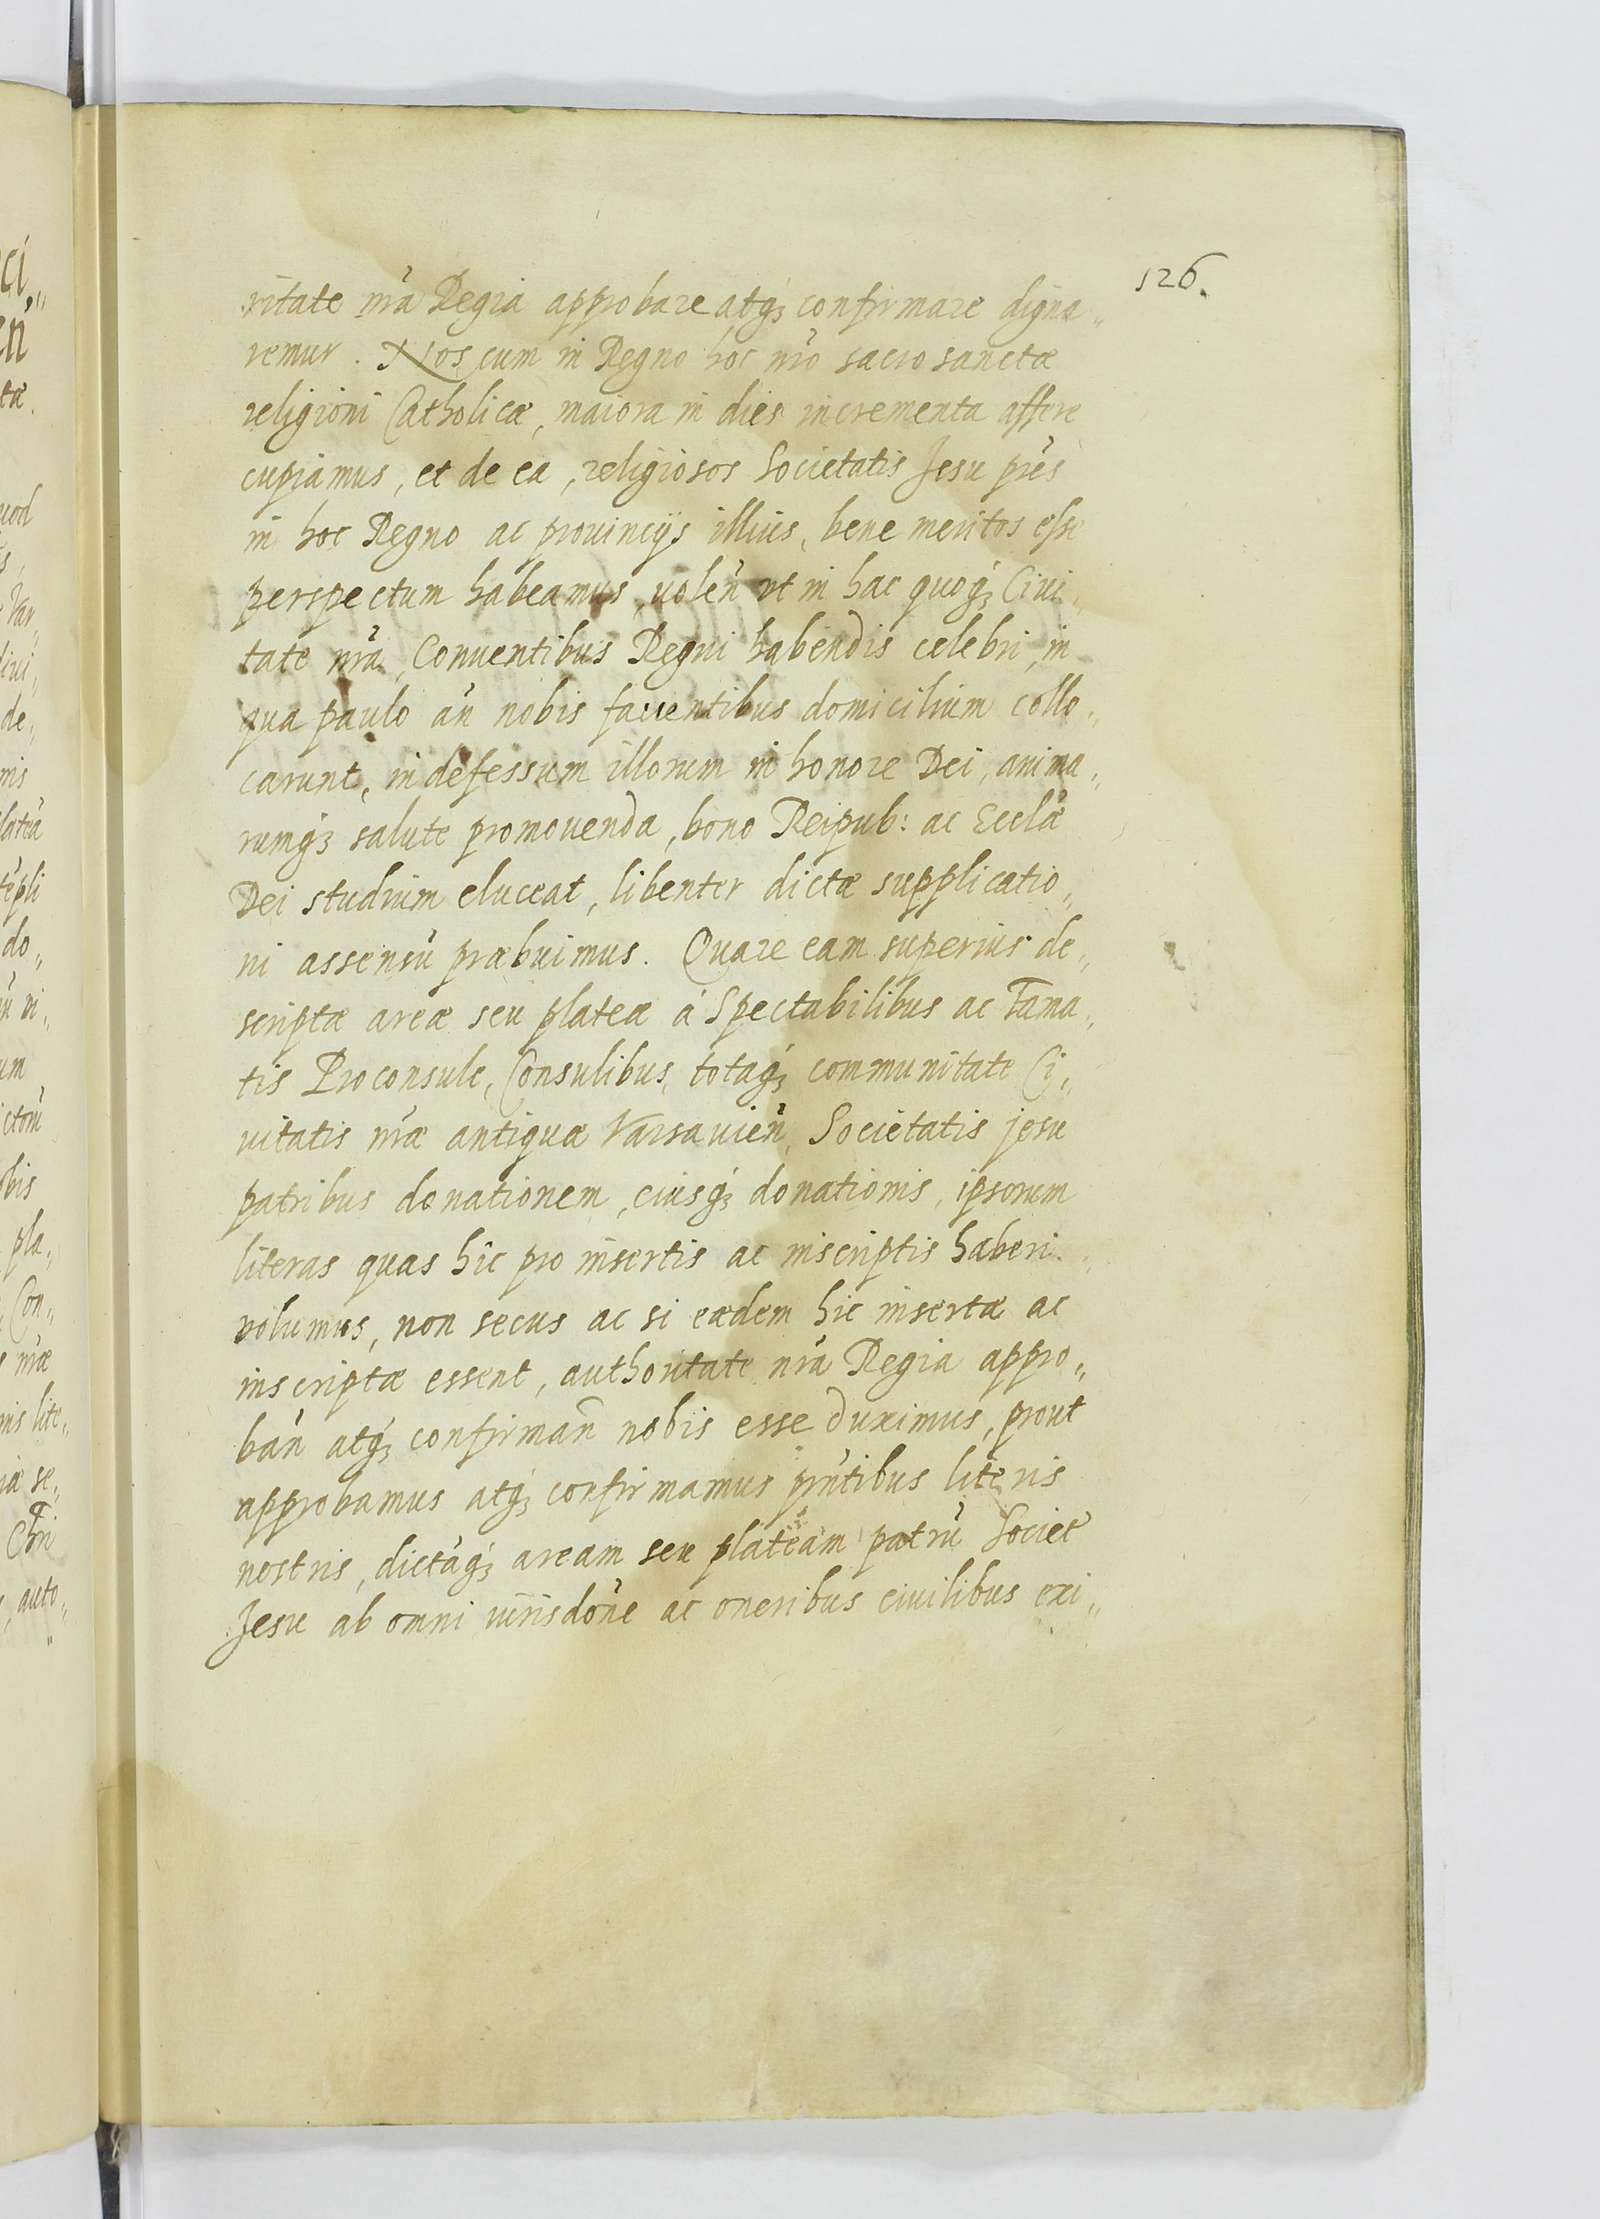 126.
ritate nr̃a Regia approbare atq₃ confirmare digna„
remur. Nos cum in Regno hoc nr̃o sacro sanctæ
religioni Catholicæ, maiora in dies incrementa afferre
cupiamus, et de ea, religiosos Societatis Jesu pr̃es
in hoc Regno ac prouincijs illius, bene meritos esse
perspectum habeamus, uolen̄ ut in hac quoq₃ Ciui„
tate nr̃a, Conuentibus Regni habendis celebri, in
qua paulo an̄ nobis fauentibus domicilium collo„
carunt, indefessum illorum in honore Dei, anima„
rumq₃ salute promouenda, bono Reipub: ac Eccl̃æ
Dei studium eluceat, libenter dictæ supplicatio„
ni assensū præbuimus. Quare eam superius de„
scriptæ areæ seu plateæ à Spectabilibus ac Fama„
tis Proconsule, Consulibus, totaq₃ communitate Ci„
uitatis nr̃æ antiquæ Varsauien̄, Societatis jesu
patribus donationem, eiusq₃ donationis, ipsorum
literas quas hîc pro insertis ac inscriptis haberi
volumus, non secus ac si eædem hic insertæ ac
inscriptæ essent, authoritate nr̃a Regia appro„
ban̄ atq₃ confirman̄ nobis esse duximus, prout
approbamus atq₃ confirmamus pr̃ntibus literis
nostris, dictāq₃ aream seu plateam patrū Societ̃
Jesu ab omni iurisdōne ac oneribus ciuilibus exi„